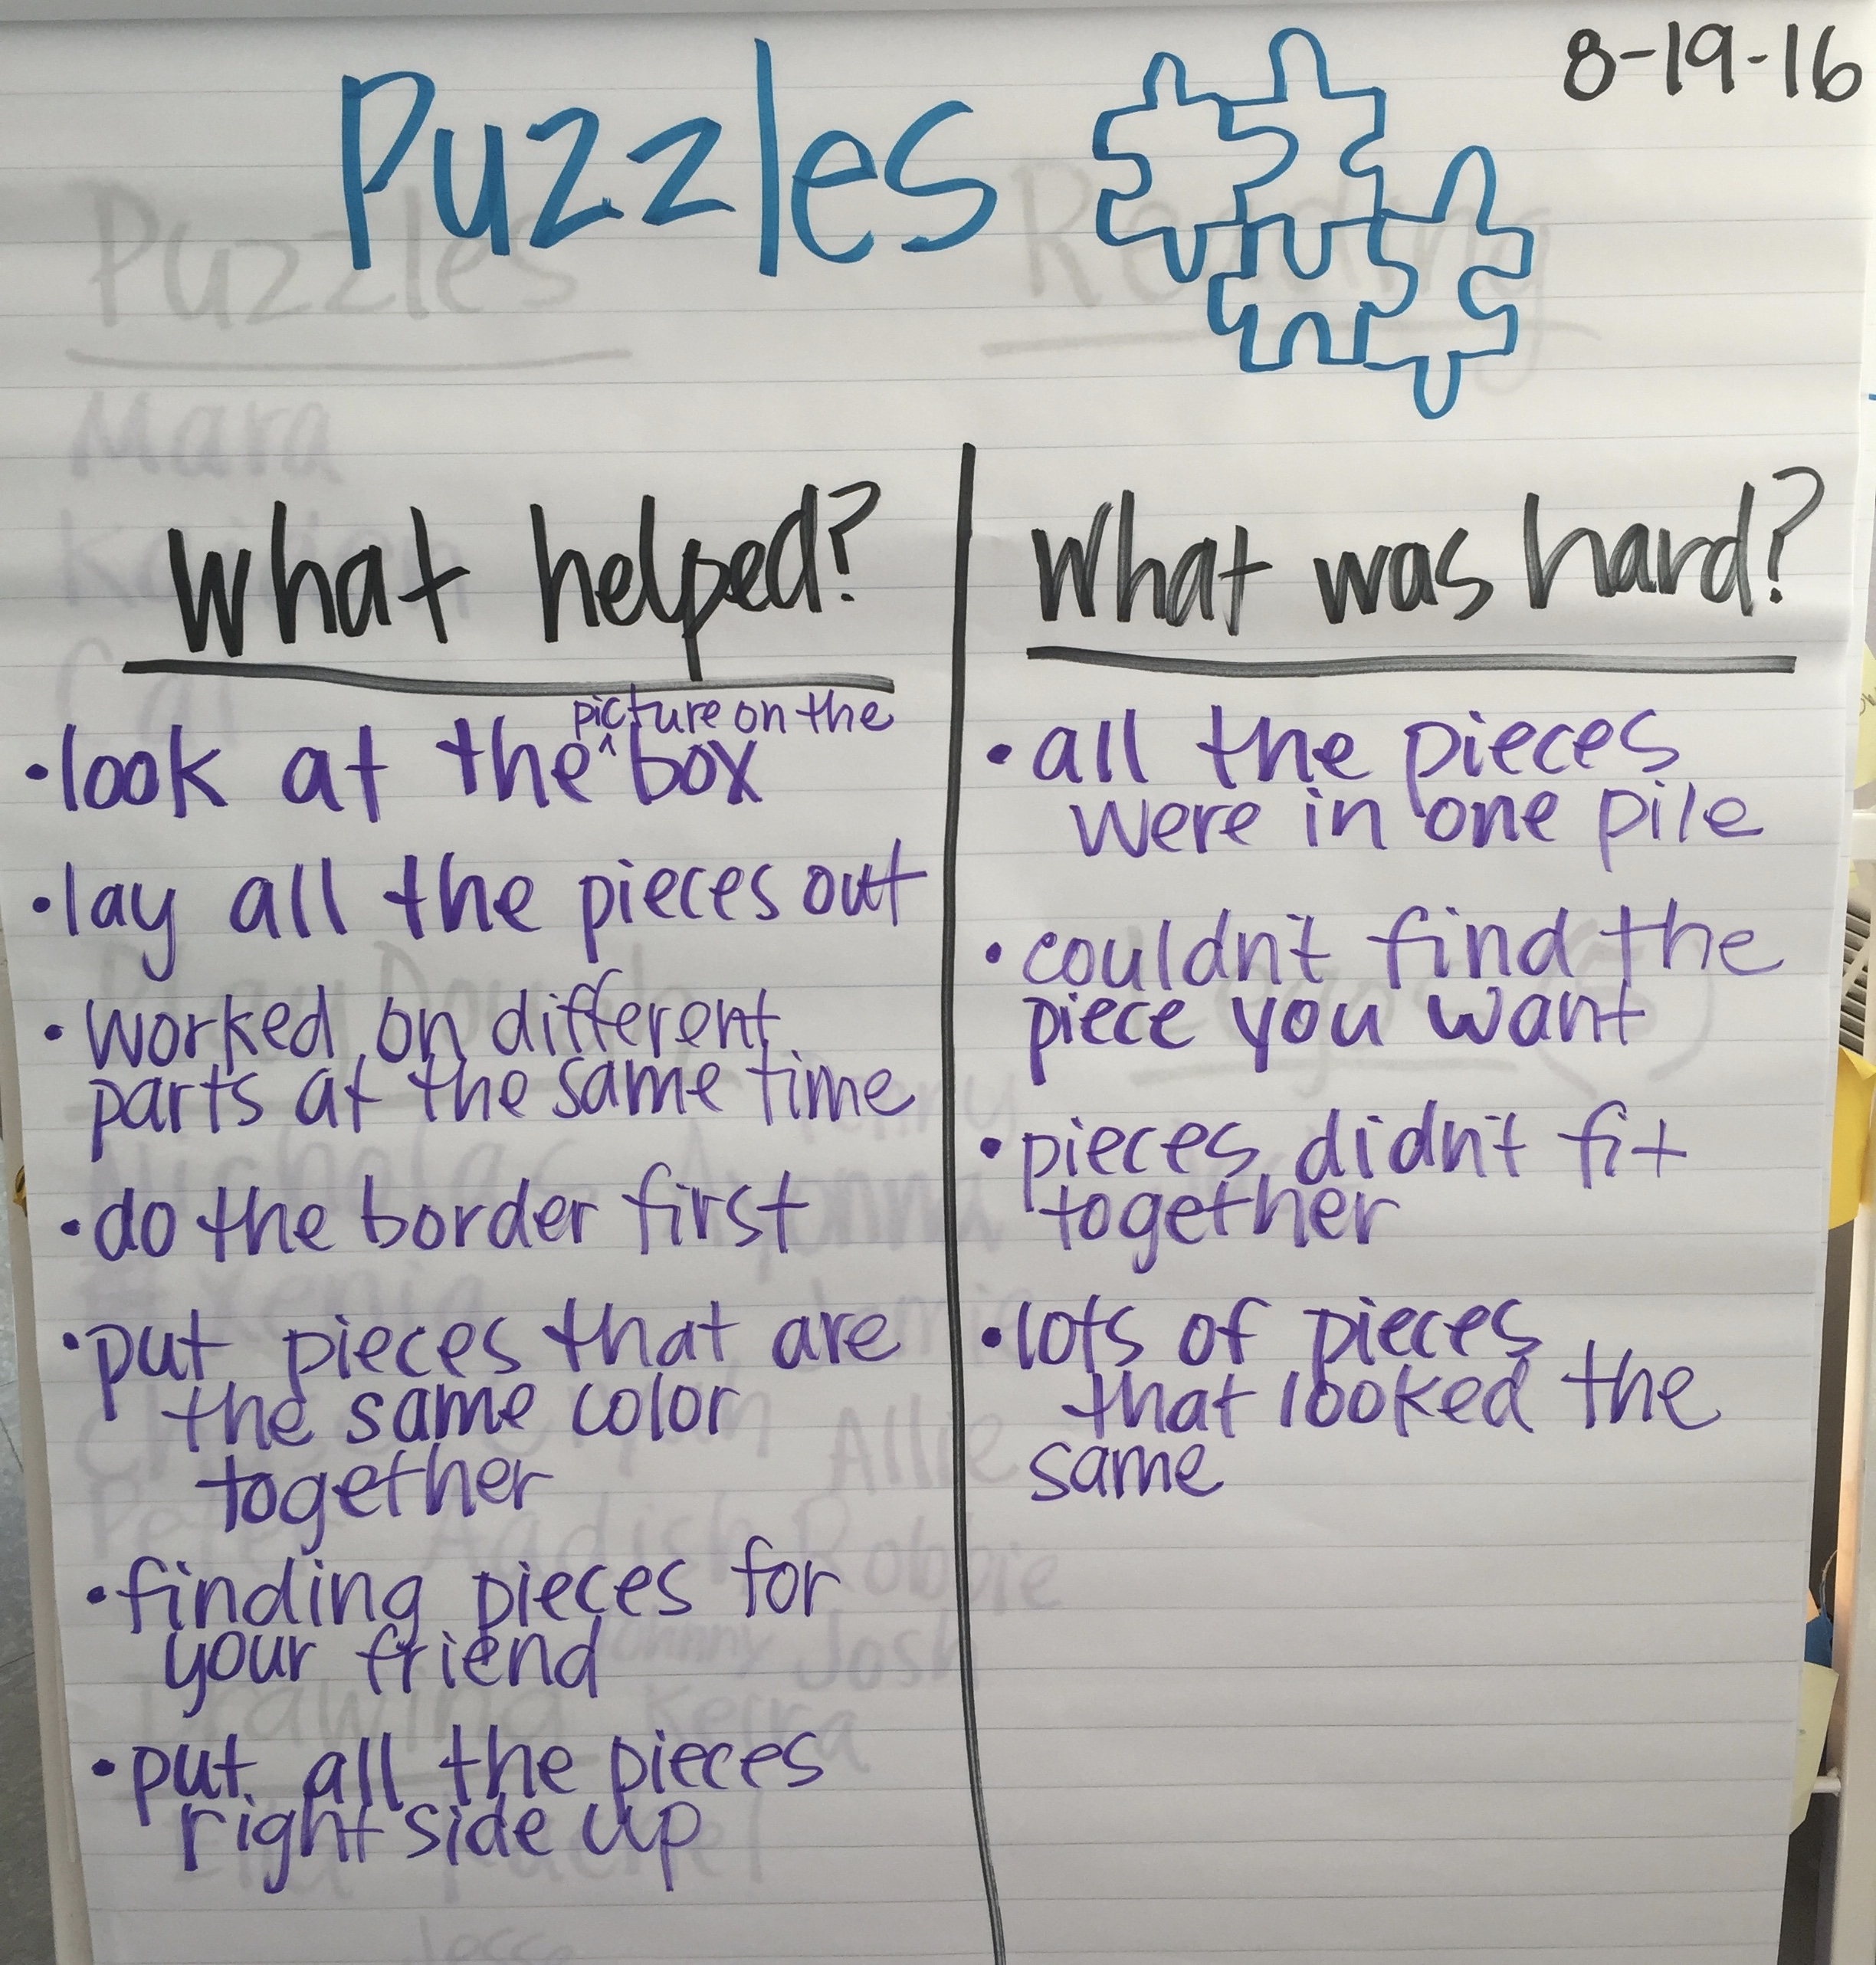 8-19-16
Puzzles
What helped?
picture on the
•look at the ^ box
•lay all the pieces out
•worked on different
parts at the same time
•do the border first
•put pieces that are
the same color
together
•finding pieces for
your friend
•put all the pieces
right side up
What was hard?
•all the pieces
were in one pile
•couldn't find the
piece you want
•pieces didn't fit
together
•lots of pieces
that looked the
same
Puzzles
Reading
Mara
Allie
Robbie
Josh
Drawing